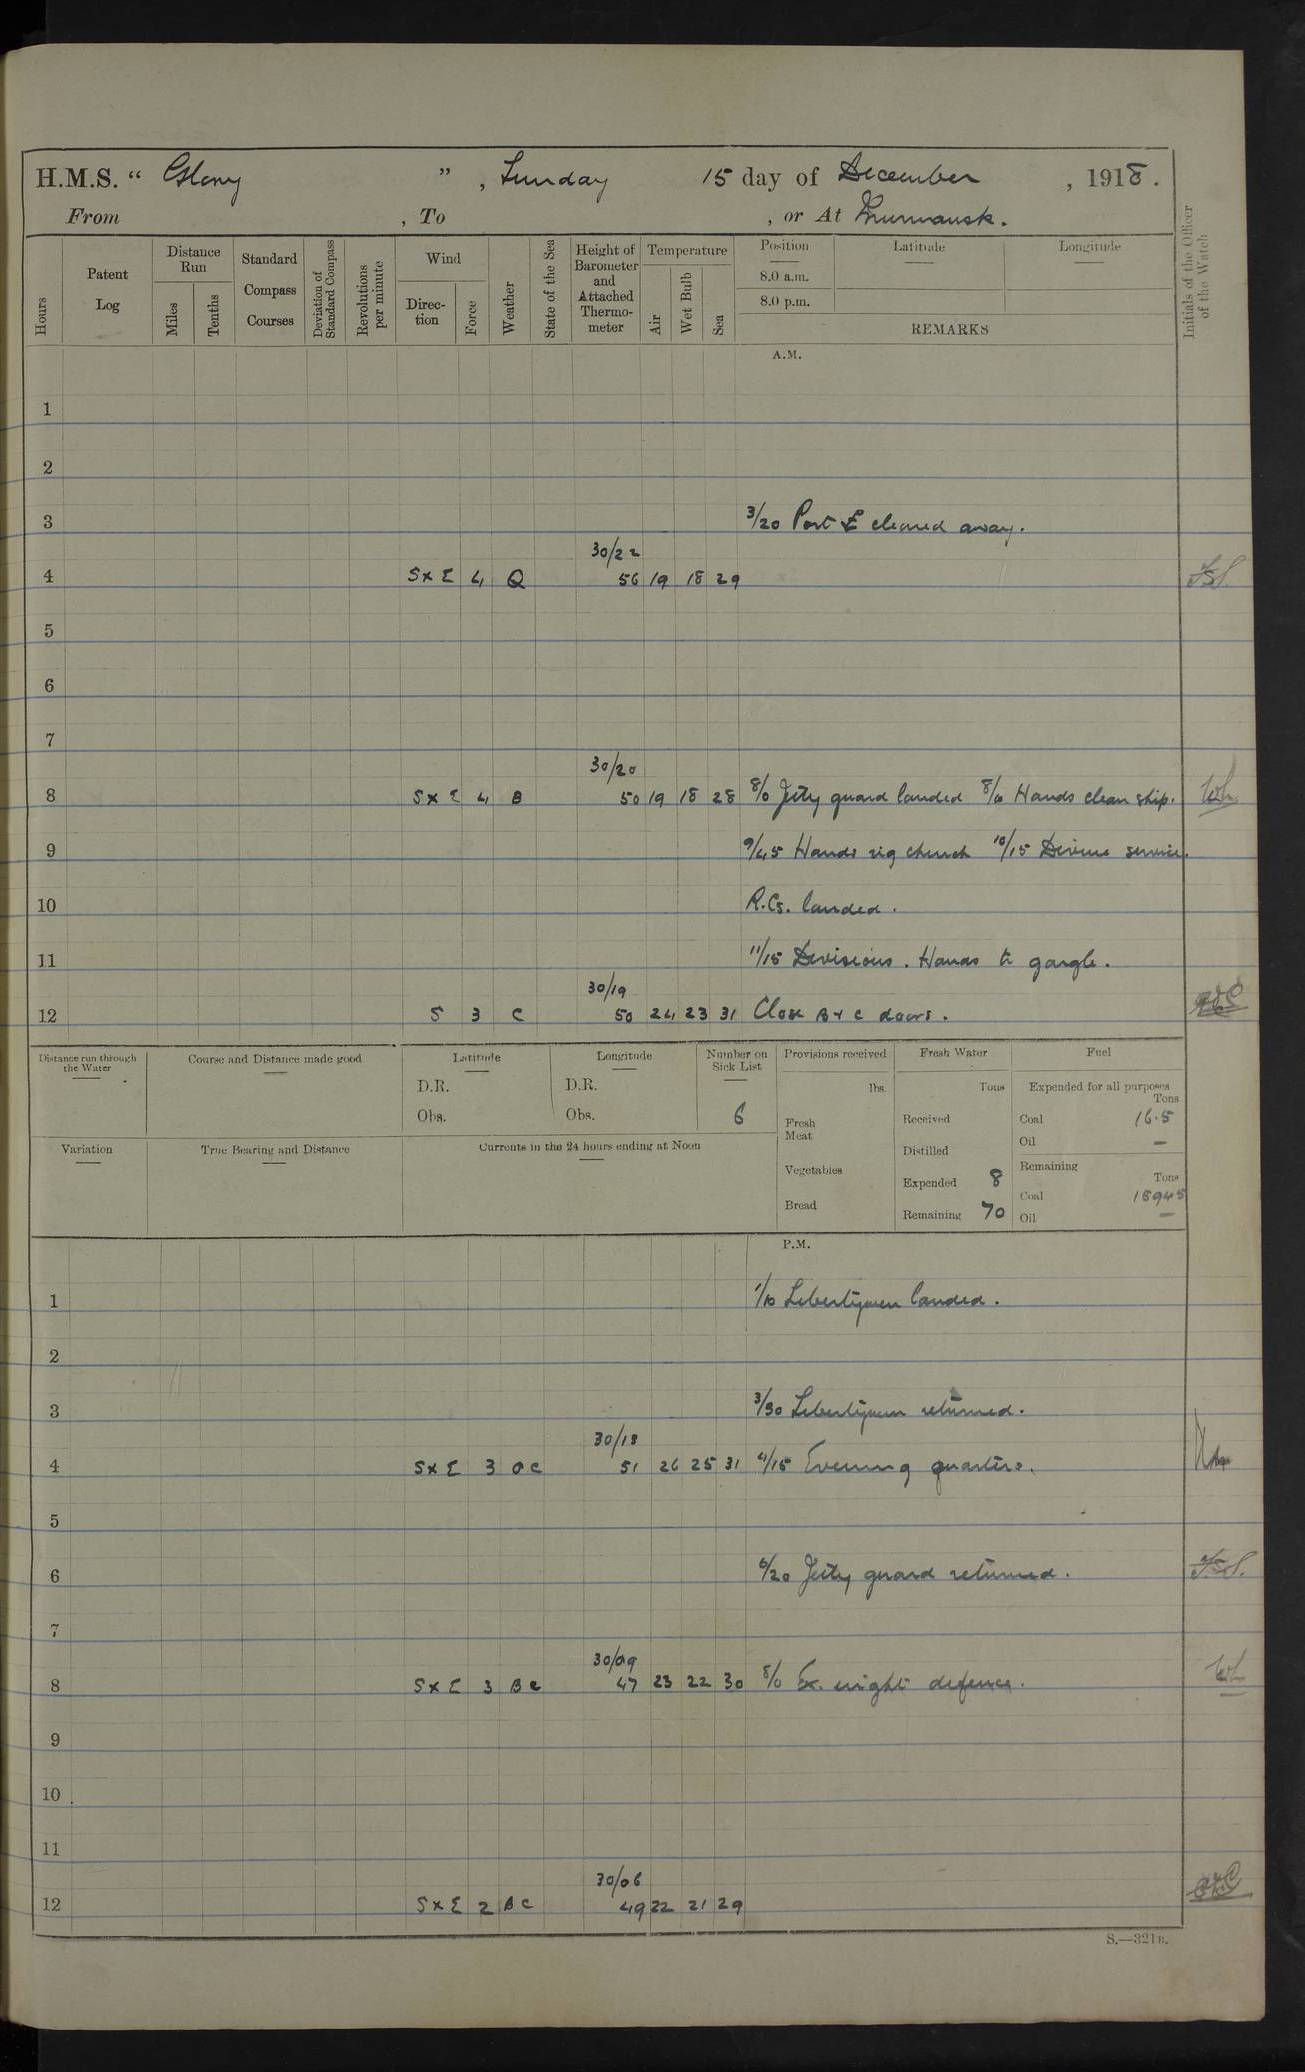 H.M.S. “ Glory ” , Sunday 15 day of December , 1918 .
From , To , or At Murmansk.
Hours
Patent Log
Distance Run
Miles
Tenths
Standard Compass Courses
Deviation of Standard Compass
Revolutions per minute
Wind
Direc-tion
Force
Weather
State of the Sea
Height of Barometer and Attached Thermo-meter
Temperature
Air
Wet Bulb
Sea
Position
8.0 a.m.
8.0 p.m.
Latitude
Longitude
REMARKS
Initials of the Officer of the Watch
A.M.
1
2
3 3/20 Port cleared away.
30/22
4 S x E 4 Q 56 19 18 29
5
6
7
30/20
8 S x E 4 B 50 19 18 28 8/0 Jetty guard landed 8/0 Hands clean ship.
9 9/45 Hands rig church 10/15 Divine service.
10 R.Cs. landed.
11 11/15 Divisions. Hands to gargle.
30/19
12 S 3 C 50 24 23 31 Close B & C doors.
Distance run through the Water
Course and Distance made good
Latitude
D.R.
Obs.
Longitude
D.R.
Obs.
Number on Sick List
6
Provisions received
lbs.
Fresh Meat
Vegetables
Bread
Fresh Water
Tons
Received
Distilled
Expended 8
Remaining 70
Fuel
Expended for all purposes
Tons
Coal 16.5
Oil —
Remaining
Tons
Coal 15945
Oil —
Variation
True Bearing and Distance
Currents in the 24 hours ending at Noon
P.M.
1 1/10 Libertymen landed.
2
3 3/30 Libertymen returned.
30/18
4 S x E 3 OC 51 26 25 31 4/15 Evening quarters.
5
6 6/20 Jetty guard returned.
7
30/09
8 S x E 3 BC 47 23 22 30 8/0 Ex. night defence.
9
10
11
30/06
12 S x E 2 BC 49 22 21 29
S.—321B.